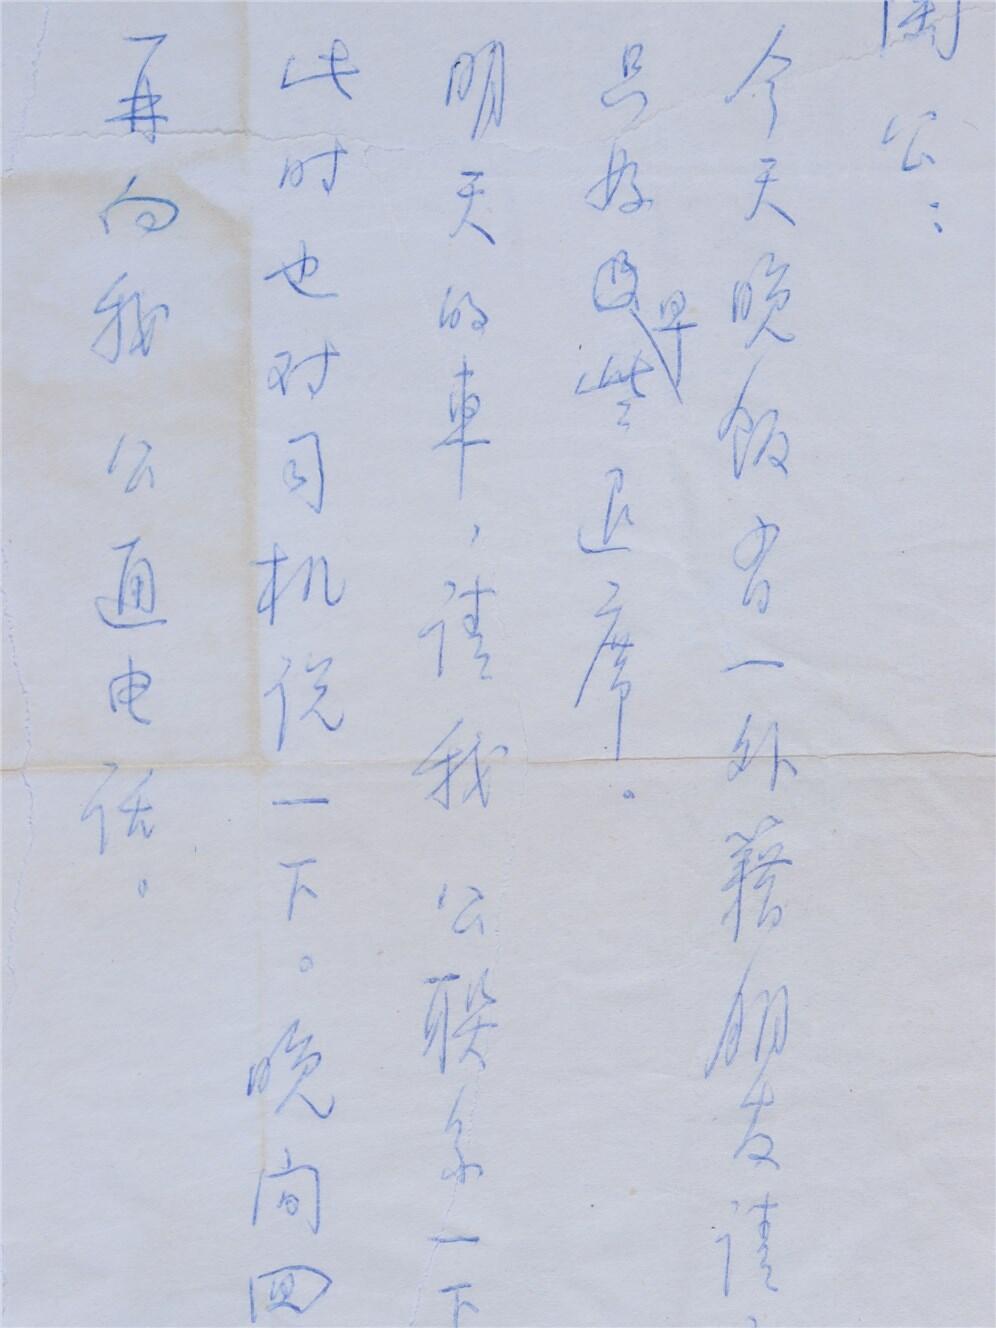 公：
今天晚饭有一外籍朋友请，
只好早些退席。
明天的車，请我公联系一下
此时也对司机说一下。晚间回
再向我公通电话。